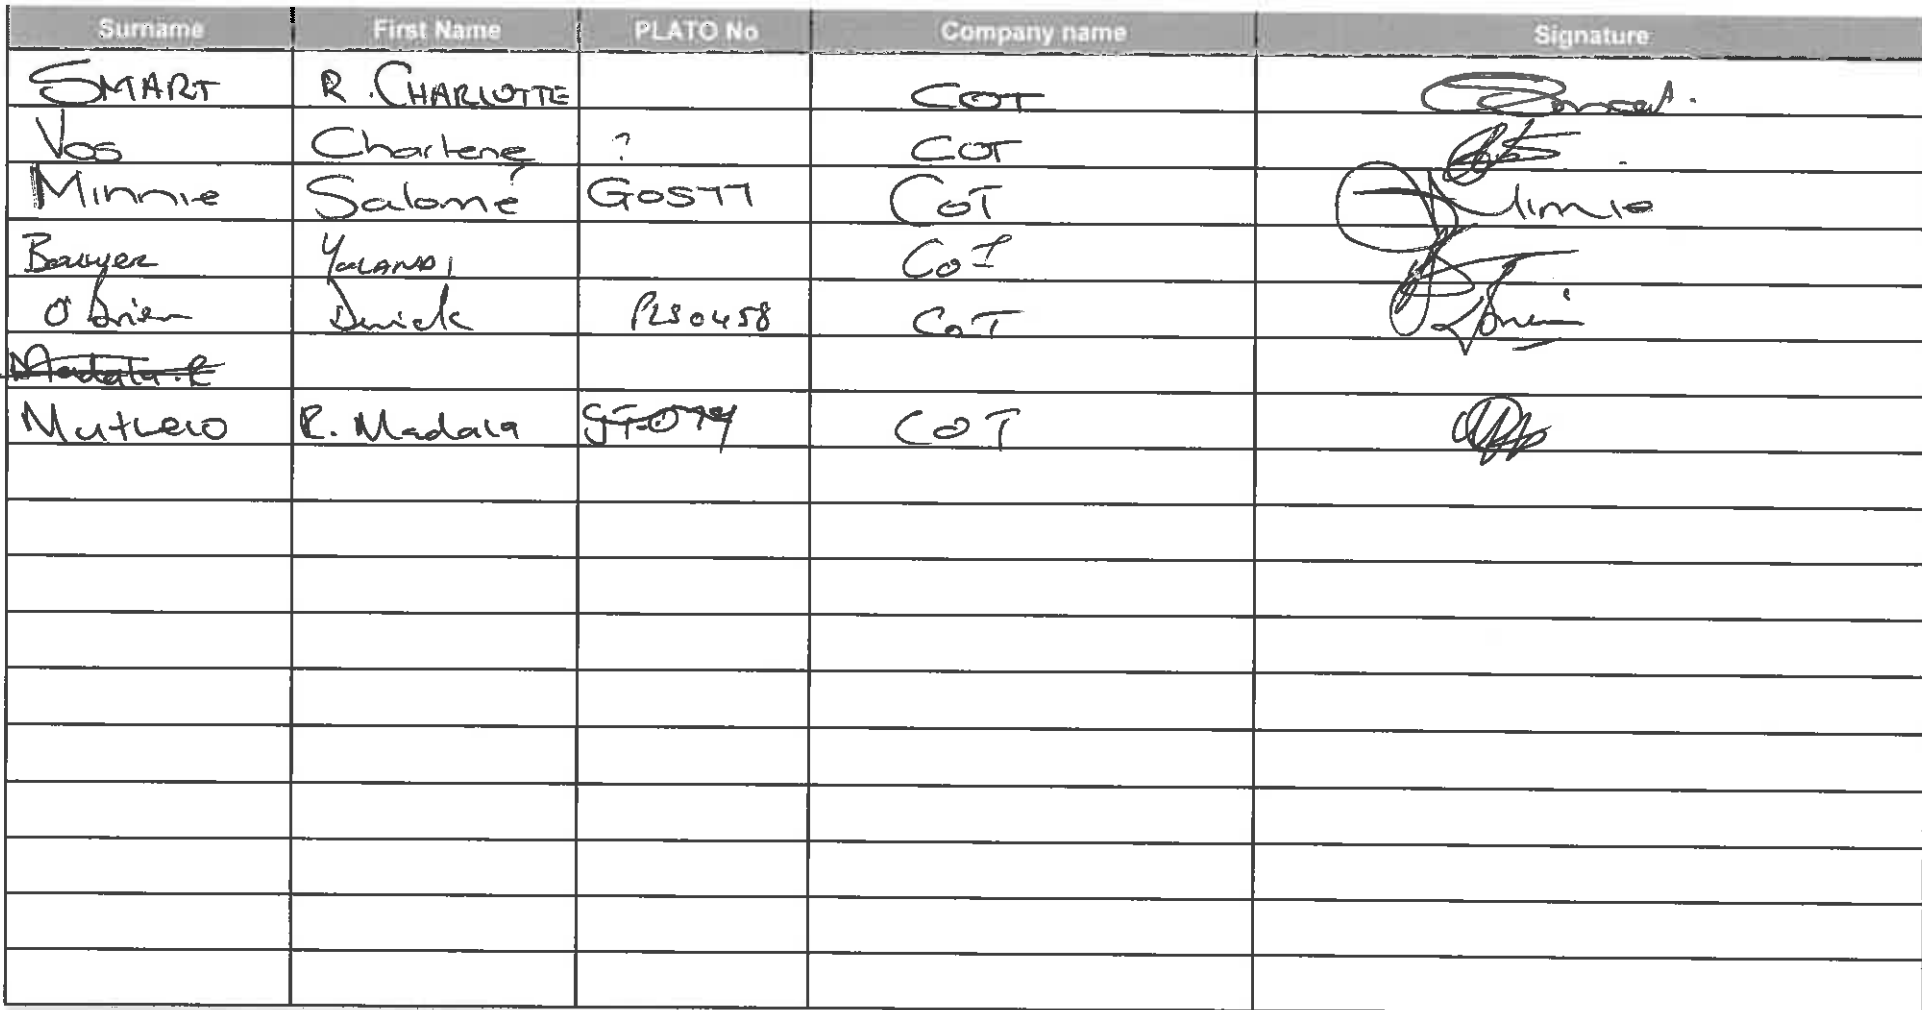 Surname First Name PLATO No Company name Signature
SMART R. CHARLOTTE COT
Vos Charlene ? COT
Minnie Salomé G0577 COT Minnie
Bouwer YOLANDI COT
O'Brien Derrick PLS0458 COT
Madala.R
R. Madala GT-079 COT